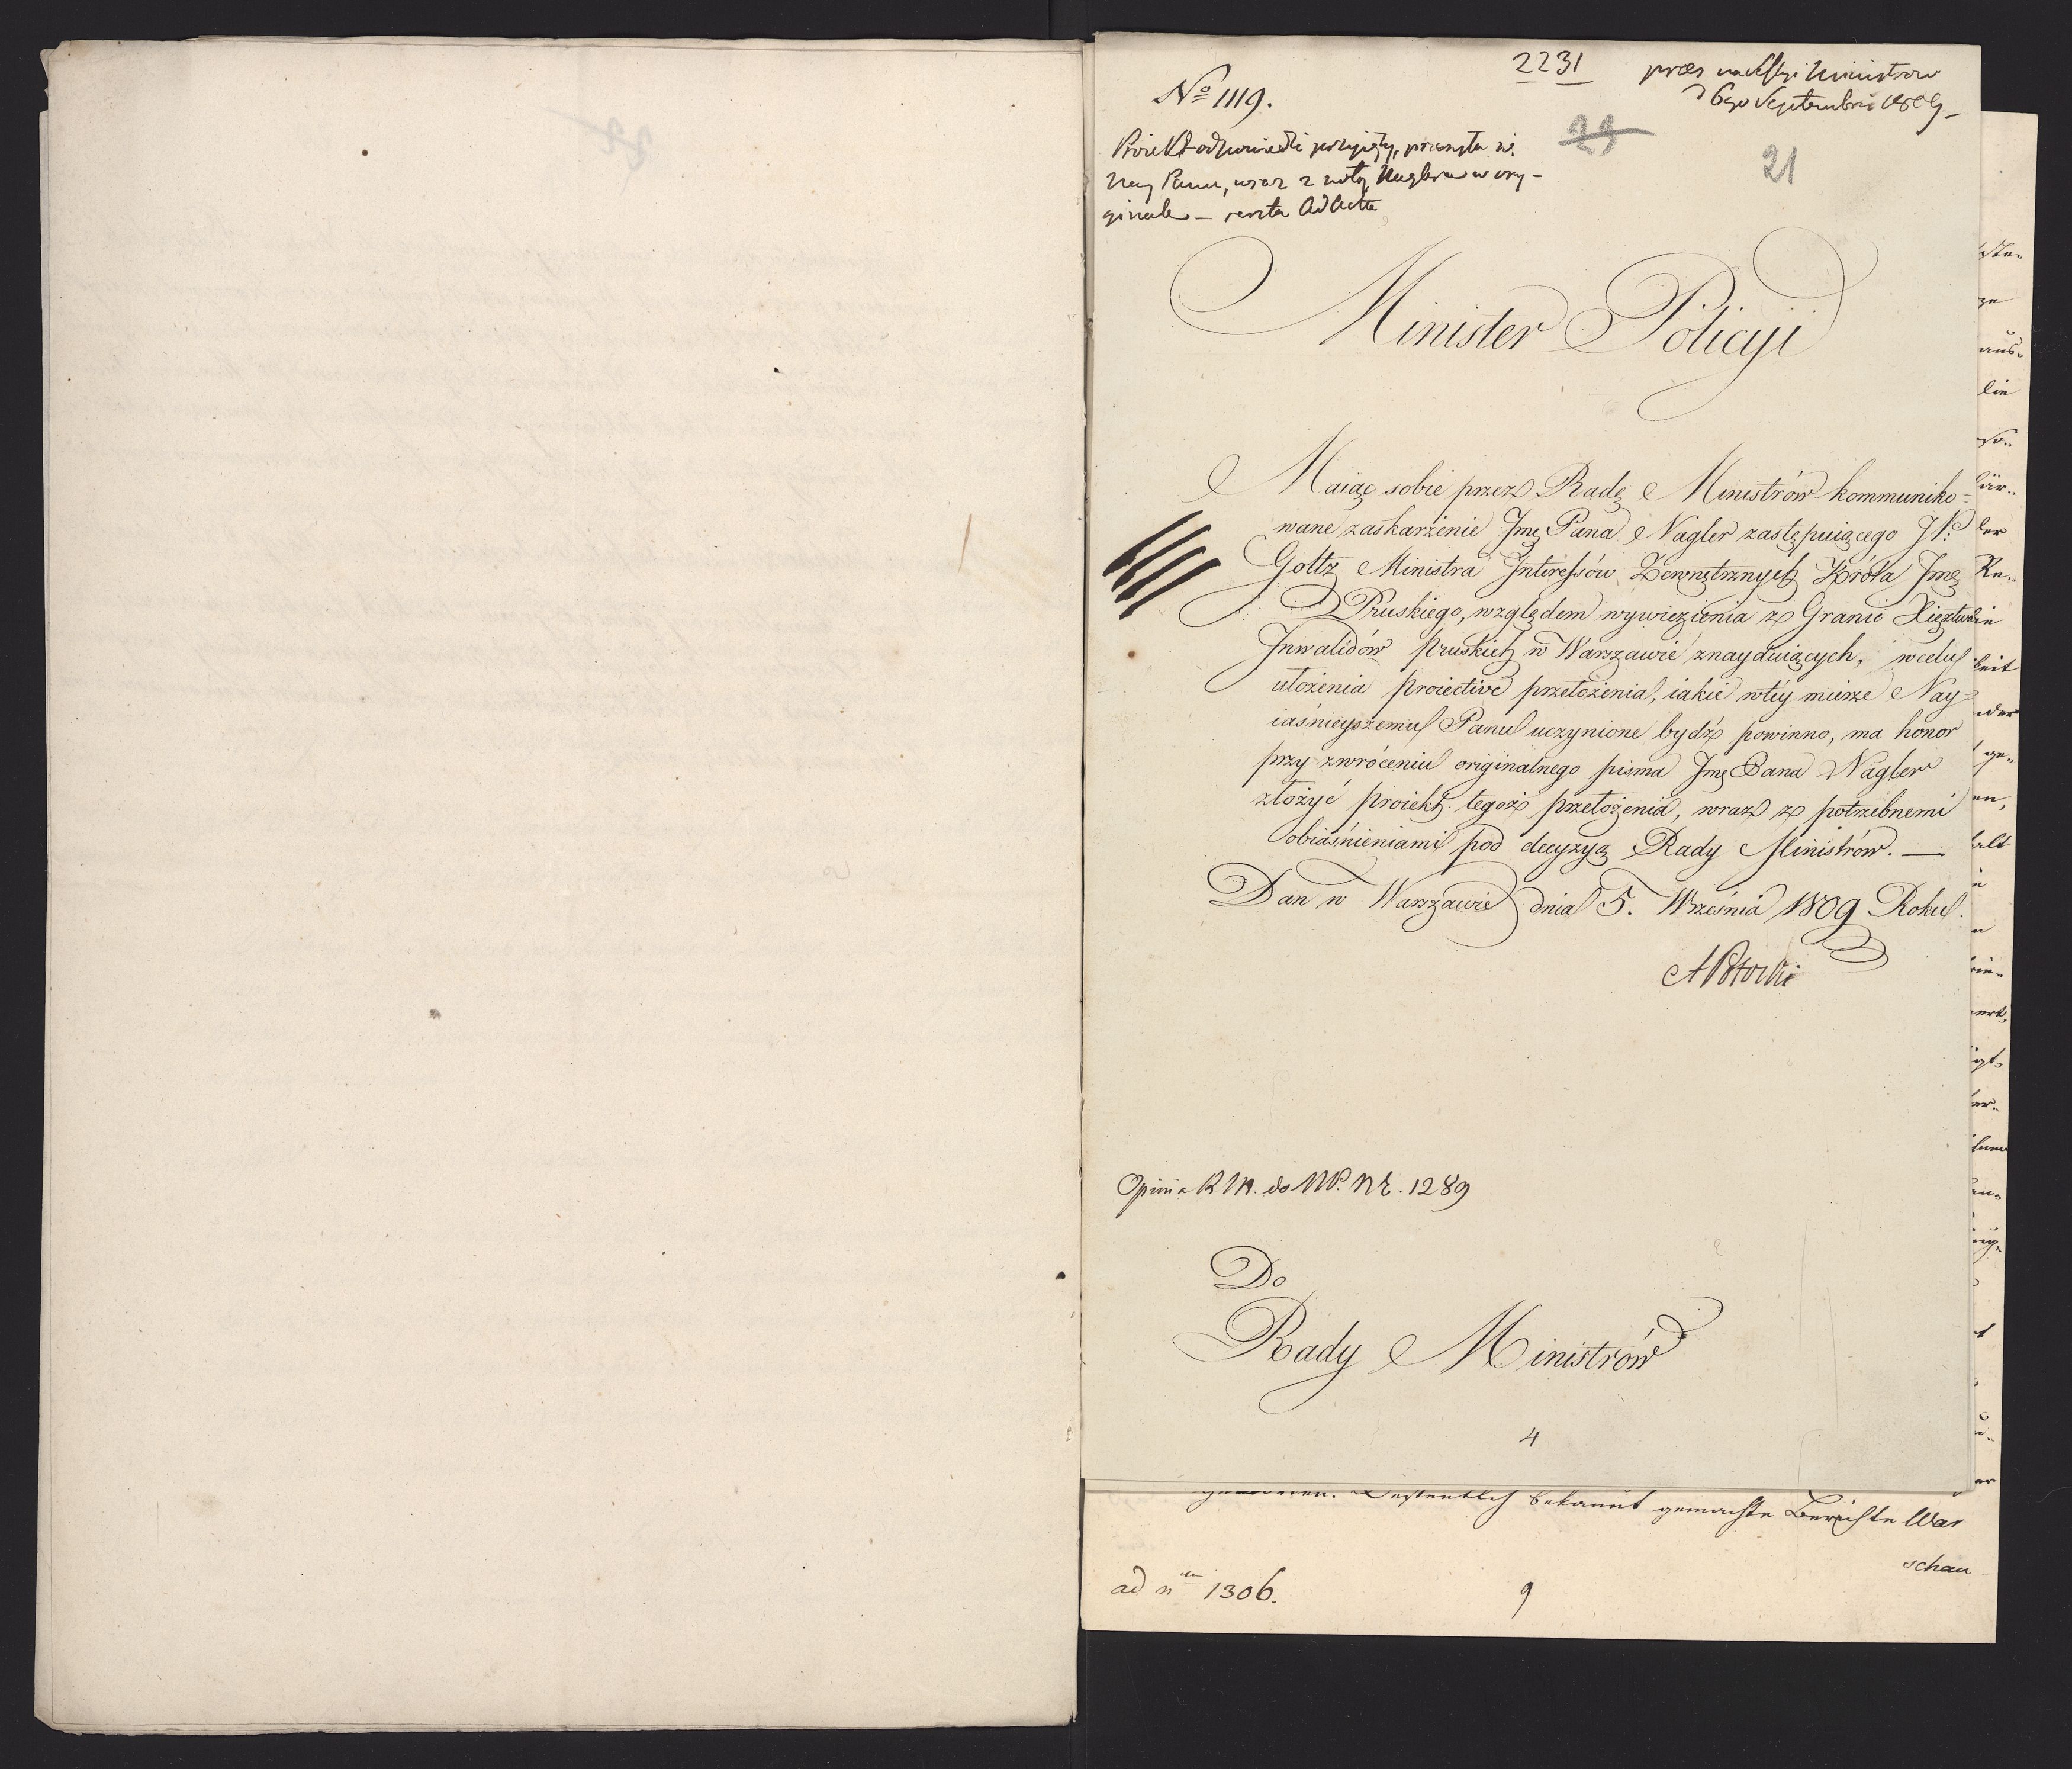 2231
No 1119.
6go Septembris 1809
Proiekt odpowiedzi przyięty, przesyła się
Nay Panu, wraz z notą Naglera w ory-
ginale – reszta Ad Acta
23
21
Minister Policyi
Maiąc sobie przez Radę Ministrów kommuniko-
wane zaskarżenie Jmę Pana Nagler zastępuiącego JP.
Goltz Ministra Interessów Zewnętrznych Króla Jmę
Pruskiego, względem wywiezienia z Granic Xięztwa
Inwalidów pruskich w Warszawie znayduiących, w celu
ułożenia proiective przełożenia, iakie w téy mierze Nay-
iaśnieyszemu Panu uczynione bydź powinno, ma honor
przy zwróceniu originalnego pisma Jmę Pana Nagler
złożyć proiekt tegoż przełożenia, wraz z potrzebnemi
obiaśnieniami pod decyzyą Rady Ministrów. —
Dan w Warszawie dnia 5. Września 1809 Roku.
APotocki
Opinia R M. do MP. Nr. 1289
Do
Rady Ministrów
4
bekannt gemachte Berichte War
schau
ad n 1306.
9